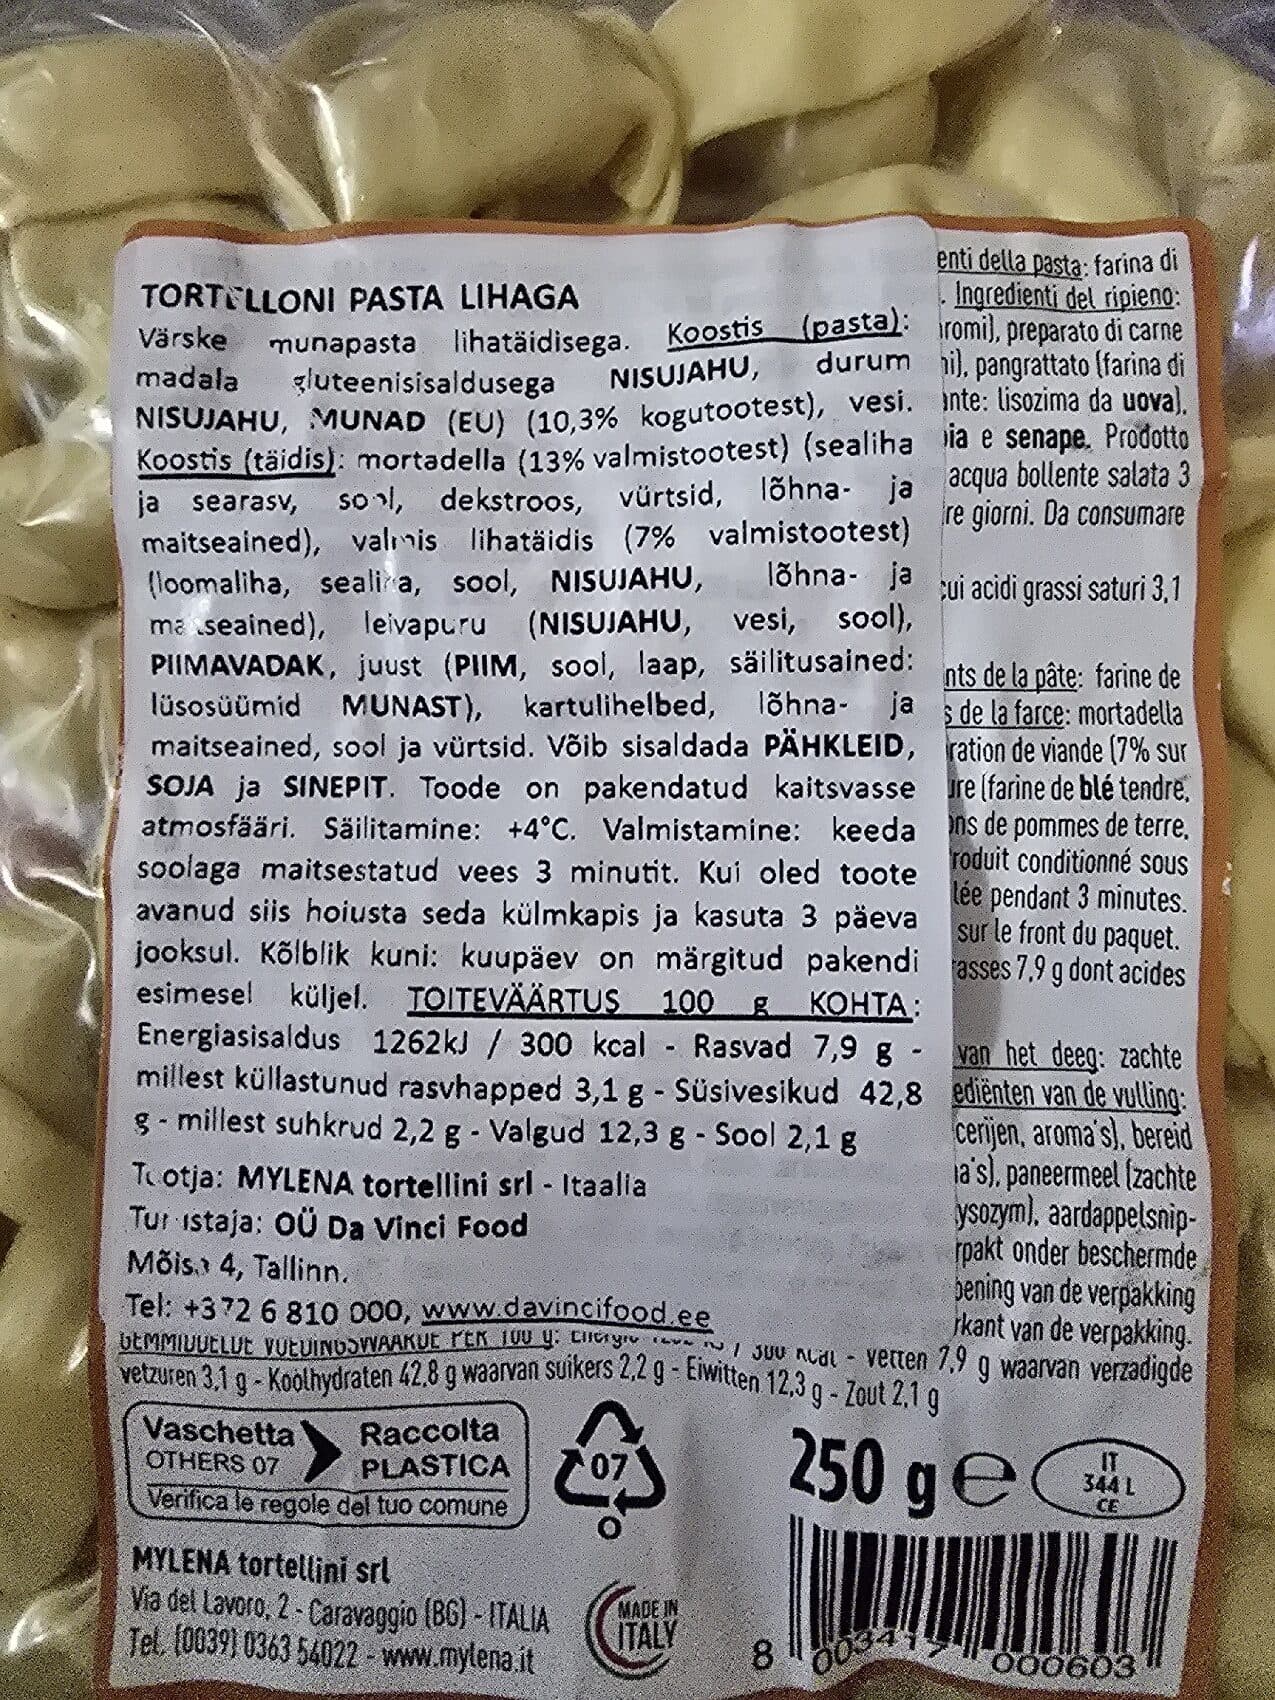 TORTELLONI PASTA LIHAGA
Värske munapasta lihatäidisega. Koostis (pasta):
madala gluteenisisaldusega NISUJAHU, durum
NISUJAHU, MUNAD (EU) (10,3% kogutootest), vesi.
Koostis (täidis): mortadella (13% valmistootest) (sealiha
ja searasv, sool, dekstroos, vürtsid, lõhna- ja
maitseained), valmis lihatäidis (7% valmistootest)
(loomaliha, sealiha, sool, NISUJAHU, lõhna- ja
maitseained), leivapuru (NISUJAHU, vesi, sool),
PIIMAVADAK, juust (PIIM, sool, laap, säilitusained:
lüsosüümid MUNAST), kartulihelbed, lõhna- ja
maitseained, sool ja vürtsid. Võib sisaldada PÄHKLEID,
SOJA ja SINEPIT. Toode on pakendatud kaitsvasse
atmosfääri. Säilitamine: +4°C. Valmistamine: keeda
soolaga maitsestatud vees 3 minutit. Kui oled toote
avanud siis hoiusta seda külmkapis ja kasuta 3 päeva
jooksul. Kõlblik kuni: kuupäev on märgitud pakendi
esimesel küljel. TOITEVÄÄRTUS 100 g KOHTA:
Energiasisaldus 1262kJ / 300 kcal - Rasvad 7,9 g -
millest küllastunud rasvhapped 3,1 g - Süsivesikud 42,8
g - millest suhkrud 2,2 g - Valgud 12,3 g - Sool 2,1 g
Tootja: MYLENA tortellini srl - Itaalia
Turustaja: OÜ Da Vinci Food
Mõisa 4, Tallinn.
Tel: +372 6 810 000, www.davincifood.ee
enti della pasta: farina di
. Ingredienti del ripieno:
romi), preparato di carne
ni), pangrattato (farina di
ante: lisozima da uova),
ia e senape. Prodotto
acqua bollente salata 3
re giorni. Da consumare
cui acidi grassi saturi 3,1
nts de la pâte: farine de
s de la farce: mortadella
ration de viande (7% sur
ure (farine de blé tendre,
ons de pommes de terre,
roduit conditionné sous
lée pendant 3 minutes.
sur le front du paquet.
rasses 7,9 g dont acides
van het deeg: zachte
ediënten van de vulling:
cerijen, aroma's), bereid
na's), paneermeel (zachte
lysozym), aardappelsnip-
rpakt onder beschermde
pening van de verpakking
rkant van de verpakking.
GEMMIDDELDE VOEDINGSWAARDE PER 100 g: / 300 kcal - vetten 7,9 g waarvan verzadigde
vetzuren 3,1 g - Koolhydraten 42,8 g waarvan suikers 2,2 g - Eiwitten 12,3 g - Zout 2,1 g
Vaschetta Raccolta
OTHERS 07 PLASTICA
Verifica le regole del tuo comune
07
O
250 g e
IT
344 L
CE
MYLENA tortellini srl
Via del Lavoro, 2 - Caravaggio (BG) - ITALIA
Tel. (0039) 0363 54022 - www.mylena.it
MADE IN
ITALY
8 003417 000603